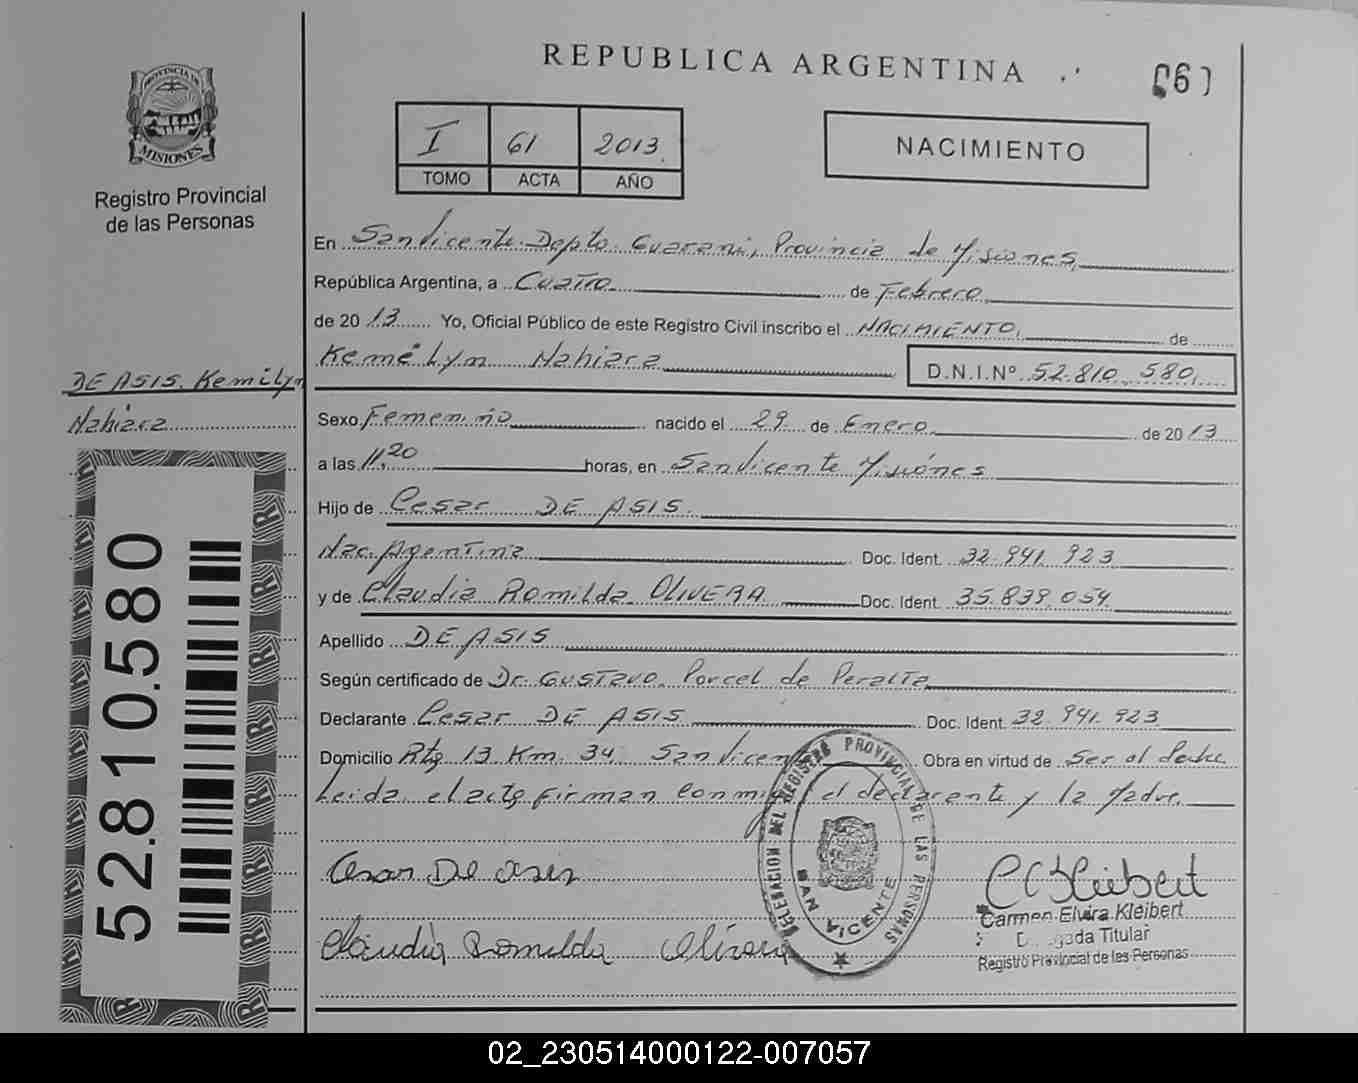 REPUBLICA ARGENTINA
(61)
PROVINCIA DE
MISIONES
Registro Provincial
de las Personas
I 61 2013
TOMO ACTA AÑO
NACIMIENTO
En San Vicente Depto. Guarani, Provincia de Misiones,
República Argentina, a Cuatro de Febrero
de 20 13 Yo, Oficial Público de este Registro Civil inscribo el NACIMIENTO, de
Kemelyn Nahiara D.N.I.Nº 52.810.580
DE ASIS. Kemilyn
Nahiara
Sexo Femenino nacido el 29 de Enero de 20 13
a las 11,20 horas, en San Vicente Misiónes
Hijo de Cesar DE ASIS.
Nac. Agentina Doc. Ident. 32.941.923
y de Claudia Romilda OLIVERA Doc. Ident. 35.839.054
Apellido DE ASIS
Según certificado de Dr. Gustavo Porcel de Peralta
Declarante Cesar DE ASIS Doc. Ident. 32.941.923
Domicilio Rta 13 Km. 34 San Vicen Obra en virtud de Ser el Padre
Leida el acta firman conmigo el declarante y la Madre.
52.810.580
Cesar De Asis
Claudia Romilda Olivera
DELEGACION DEL REGISTRO PROVINCIAL DE LAS PERSONAS
SAN VICENTE
C Kleibert
Carmen Elvira Kleibert
Delegada Titular
Registro Provincial de las Personas
02_230514000122-007057